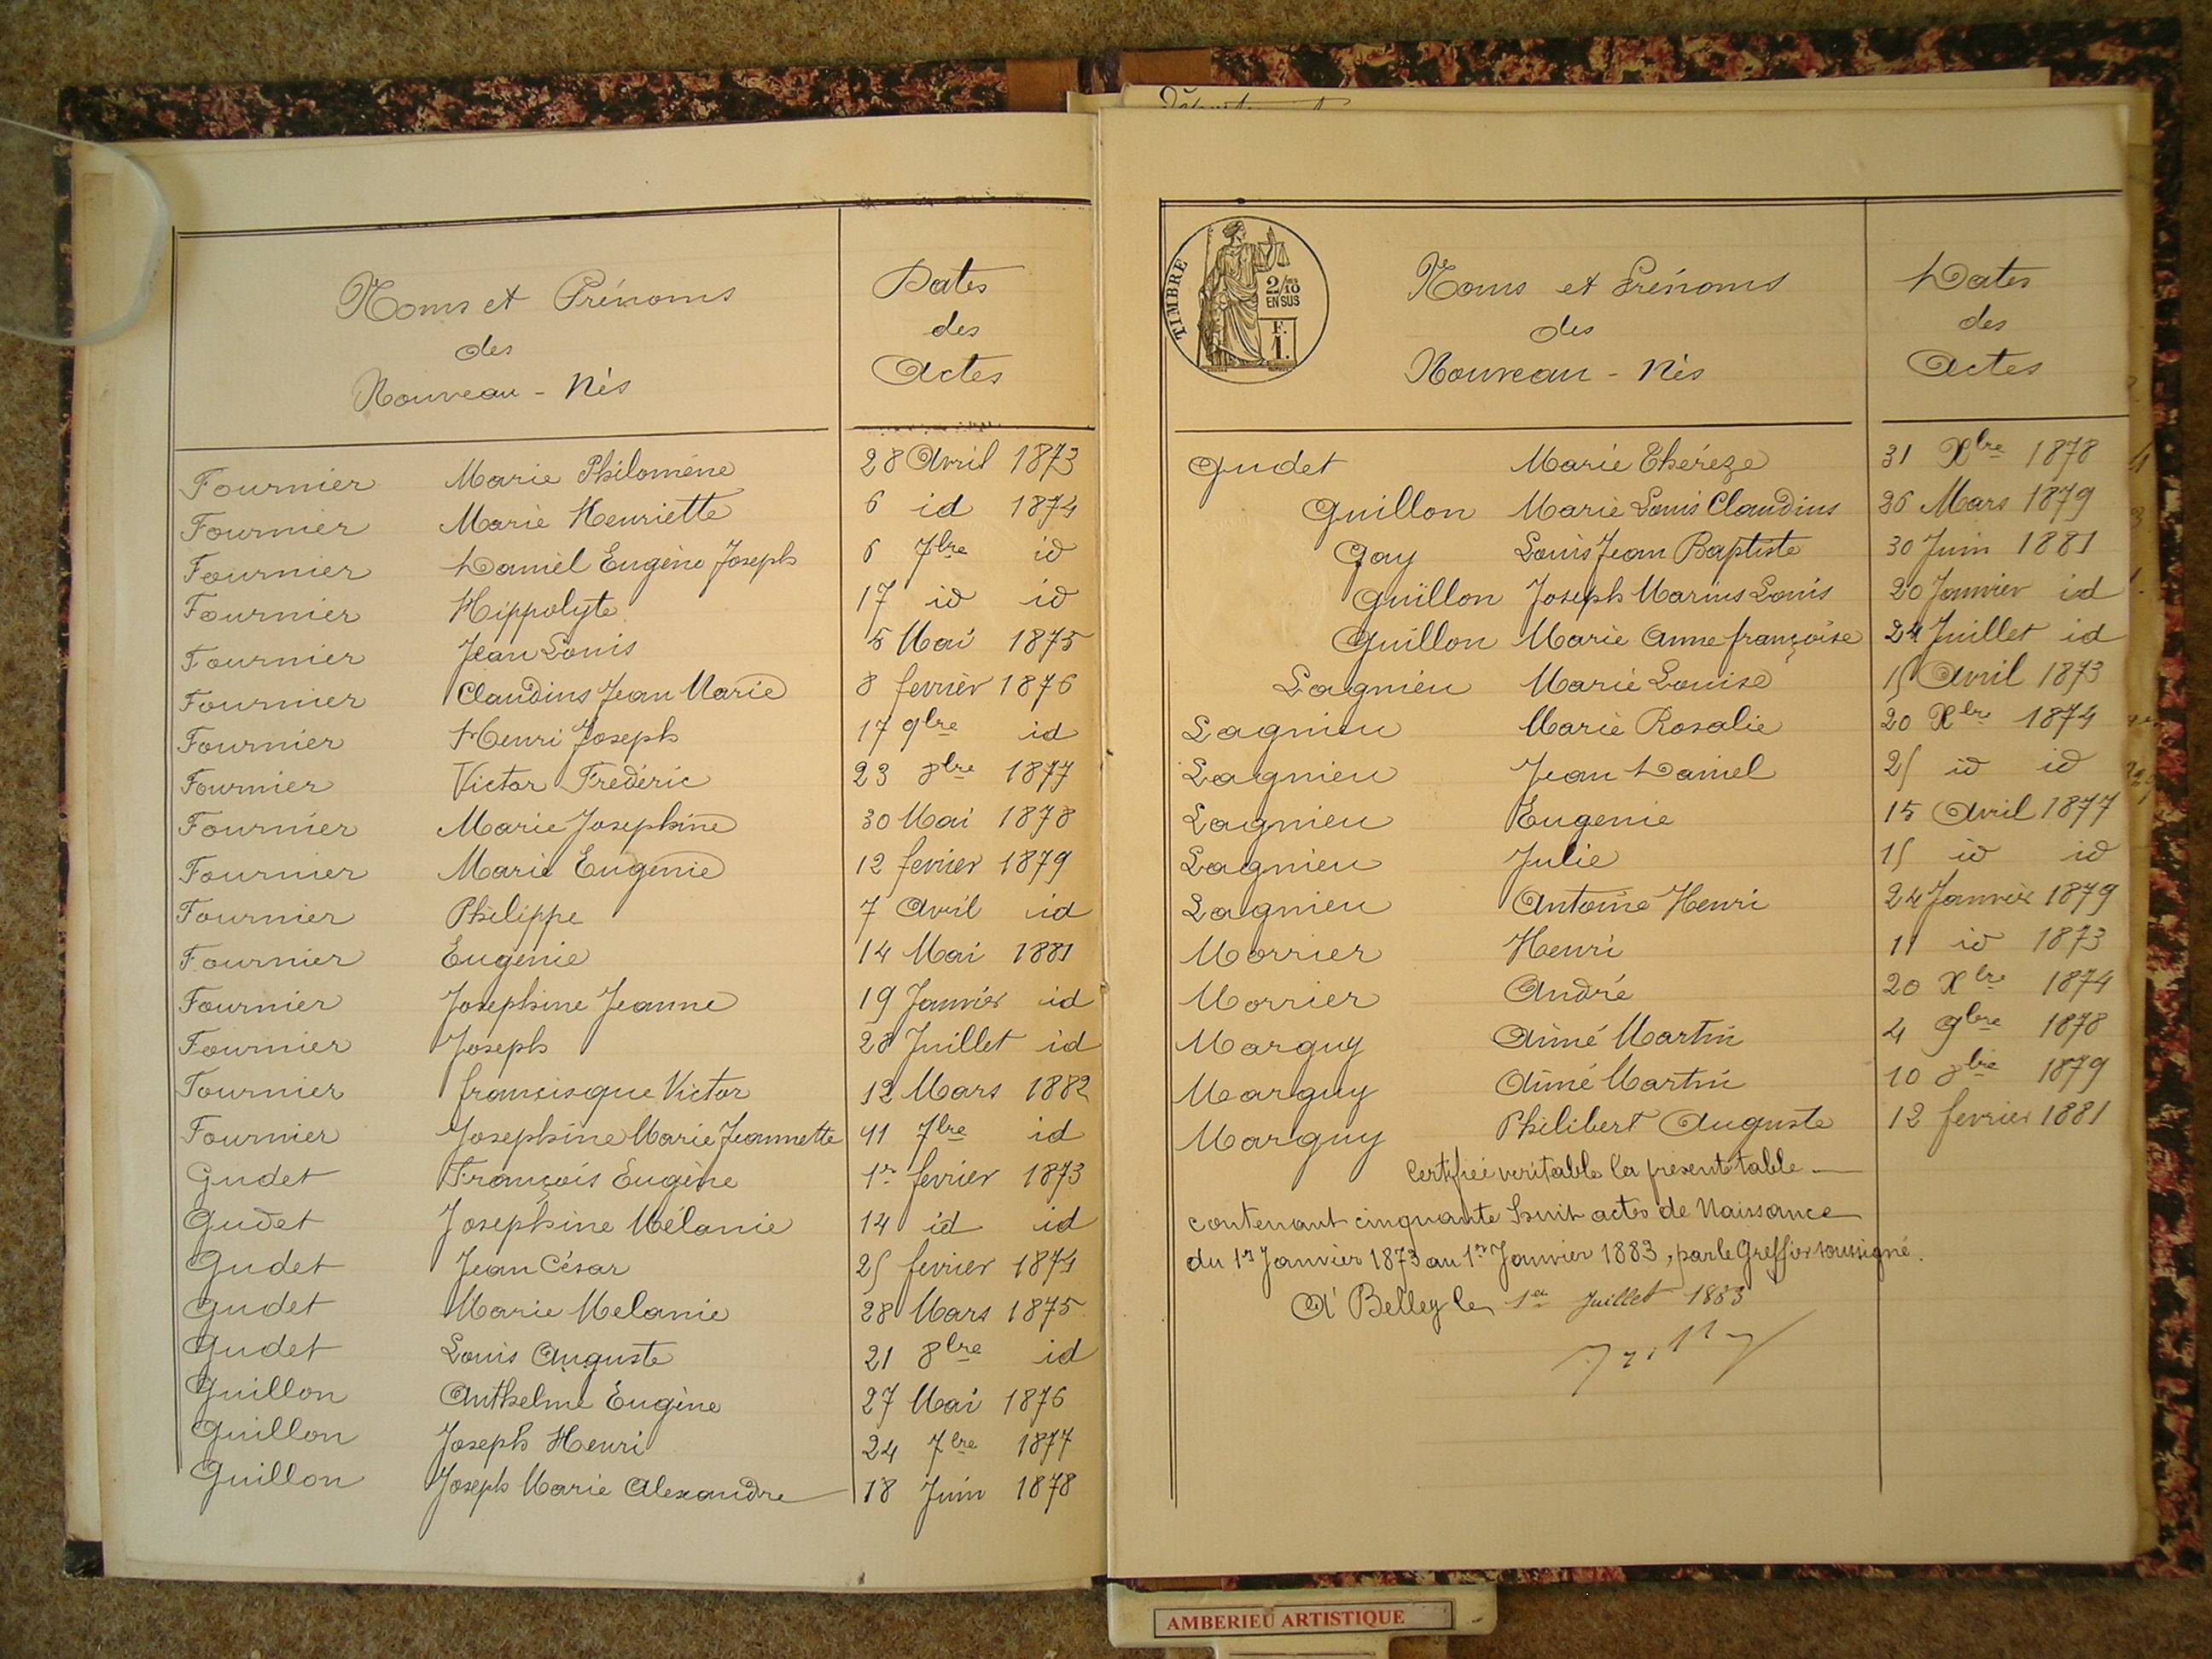 Noms et Prénoms
des
Nouveau - Nés
Dates
des
Actes
Fournier Marie Philoméne 28 Avril 1873
Fournier Marie Henriette 6 id 1874
Fournier Daniel Eugène Joseph 6 7bre id
Fournier Hippolyte 17 id id
Fournier Jean Louis 5 Mai 1875
Fournier Claudius Jean Marie 8 fevrier 1876
Fournier Henri Joseph 17 9bre id
Fournier Victor Frederic 23 8bre 1877
Fournier Marie Josephine 30 Mai 1878
Fournier Marie Eugenie 12 fevrier 1879
Fournier Philippe 7 Avril id
Fournier Eugenie 14 Mai 1881
Fournier Josephine Jeanne 19 Janvier id
Fournier Joseph 28 Juillet id
Fournier francisque Victor 12 Mars 1882
Fournier Josephine Marie Jeannette 11 7bre id
Gudet François Eugène 1er fevrier 1873
Gudet Josephine Mélanie 14 id id
Gudet Jean César 25 fevrier 1874
Gudet Marie Melanie 28 Mars 1875
Gudet Louis Auguste 21 8bre id
Guillon Anthelme Eugène 27 Mai 1876
Guillon Joseph Henri 24 7bre 1877
Guillon Joseph Marie Alexandre 18 Juin 1878
TIMBRE
2/10
EN SUS
F.
1.
Noms et Prénoms
des
Nouveau - Nés
Dates
des
Actes
Gudet Marie Théréze 31 Xbre 1878
Guillon Marie Louis Claudius 26 Mars 1879
Gay Louis Jean Baptiste 30 Juin 1881
Guillon Joseph Marius Louis 20 Janvier id
Guillon Marie Anne françoise 24 Juillet id
Lagnieu Marie Louise 15 Avril 1873
Lagnieu Marie Rosalie 20 Xbre 1874
Lagnieu Jean Daniel 25 id id
Lagnieu Eugenie 15 Avril 1877
Lagnieu Julie 15 id id
Lagnieu Antoine Henri 24 Janvier 1879
Morrier Henri 11 id 1873
Morrier André 20 Xbre 1874
Marguy Aimé Martin 4 9bre 1878
Marguy Aimé Martin 10 8bre 1879
Marguy Philibert Auguste 12 fevrier 1881
Certifiée veritable la presente table
contenant cinquante huit actes de Naissance
du 1er Janvier 1873 au 1er Janvier 1883, par le Greffier soussigné.
A Belley le 1er Juillet 1883
AMBERIEU ARTISTIQUE